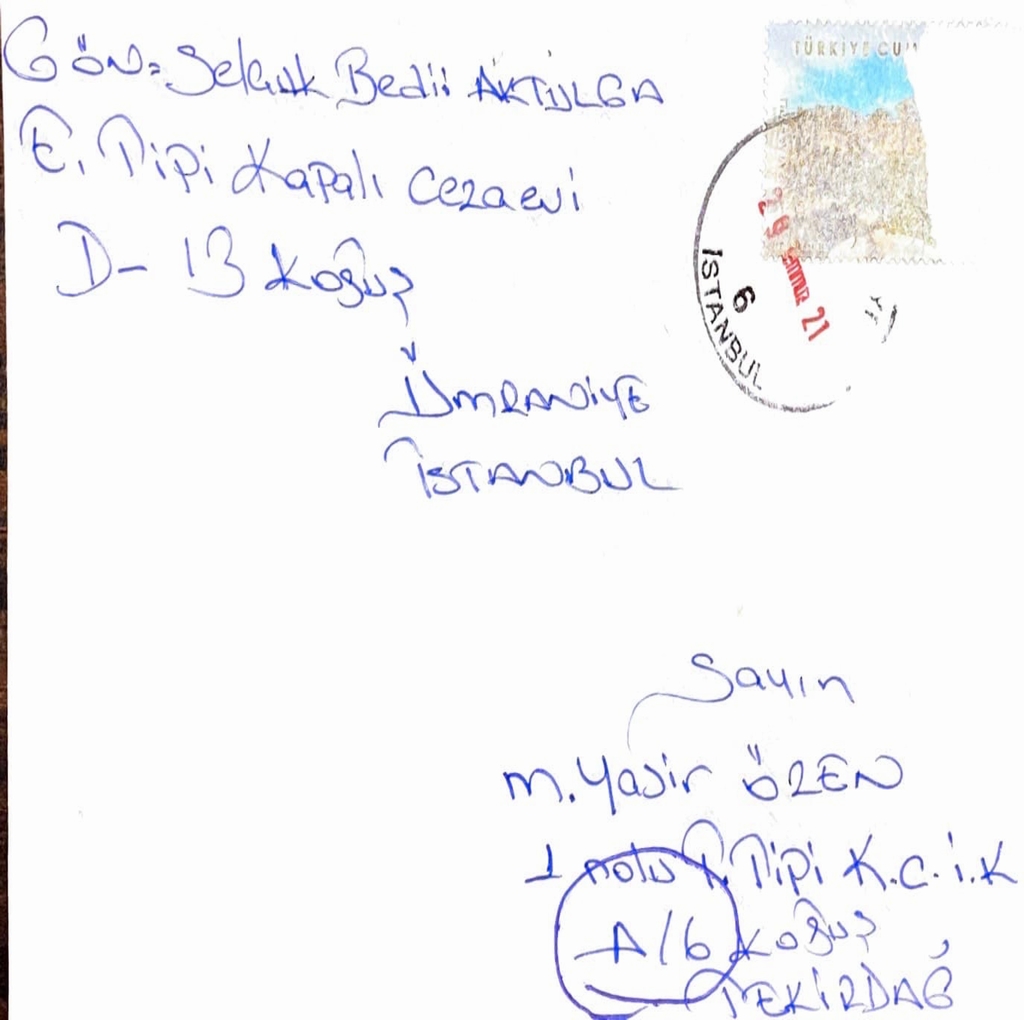 GÖN= Selçuk Bedii AKTULGA
E. Tipi Kapalı Cezaevi
D- 13 Koğuş
ÜMRANİYE
İSTANBUL
TÜRKİYE CU
29 21
6
İSTANBUL
Sayın
M. Yasir ÖZEN
1 nolu Tipi K.C.İ.K
A/6 Koğuş
TEKİRDAĞ